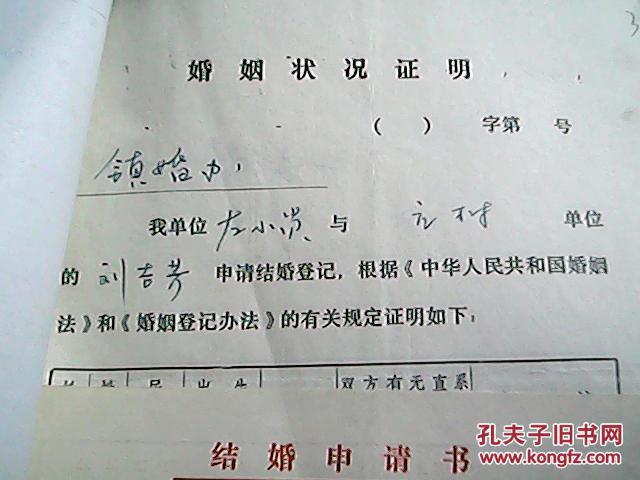 3
婚姻状况证明
（ ） 字第 号
镇婚办，
我单位 左小 与 村 单位
的 刘吉芳 申请结婚登记，根据《中华人民共和国婚姻
法》和《婚姻登记办法》的有关规定证明如下：
出生 双方有无直系
结婚申请书
孔夫子旧书网
www.kongfz.com